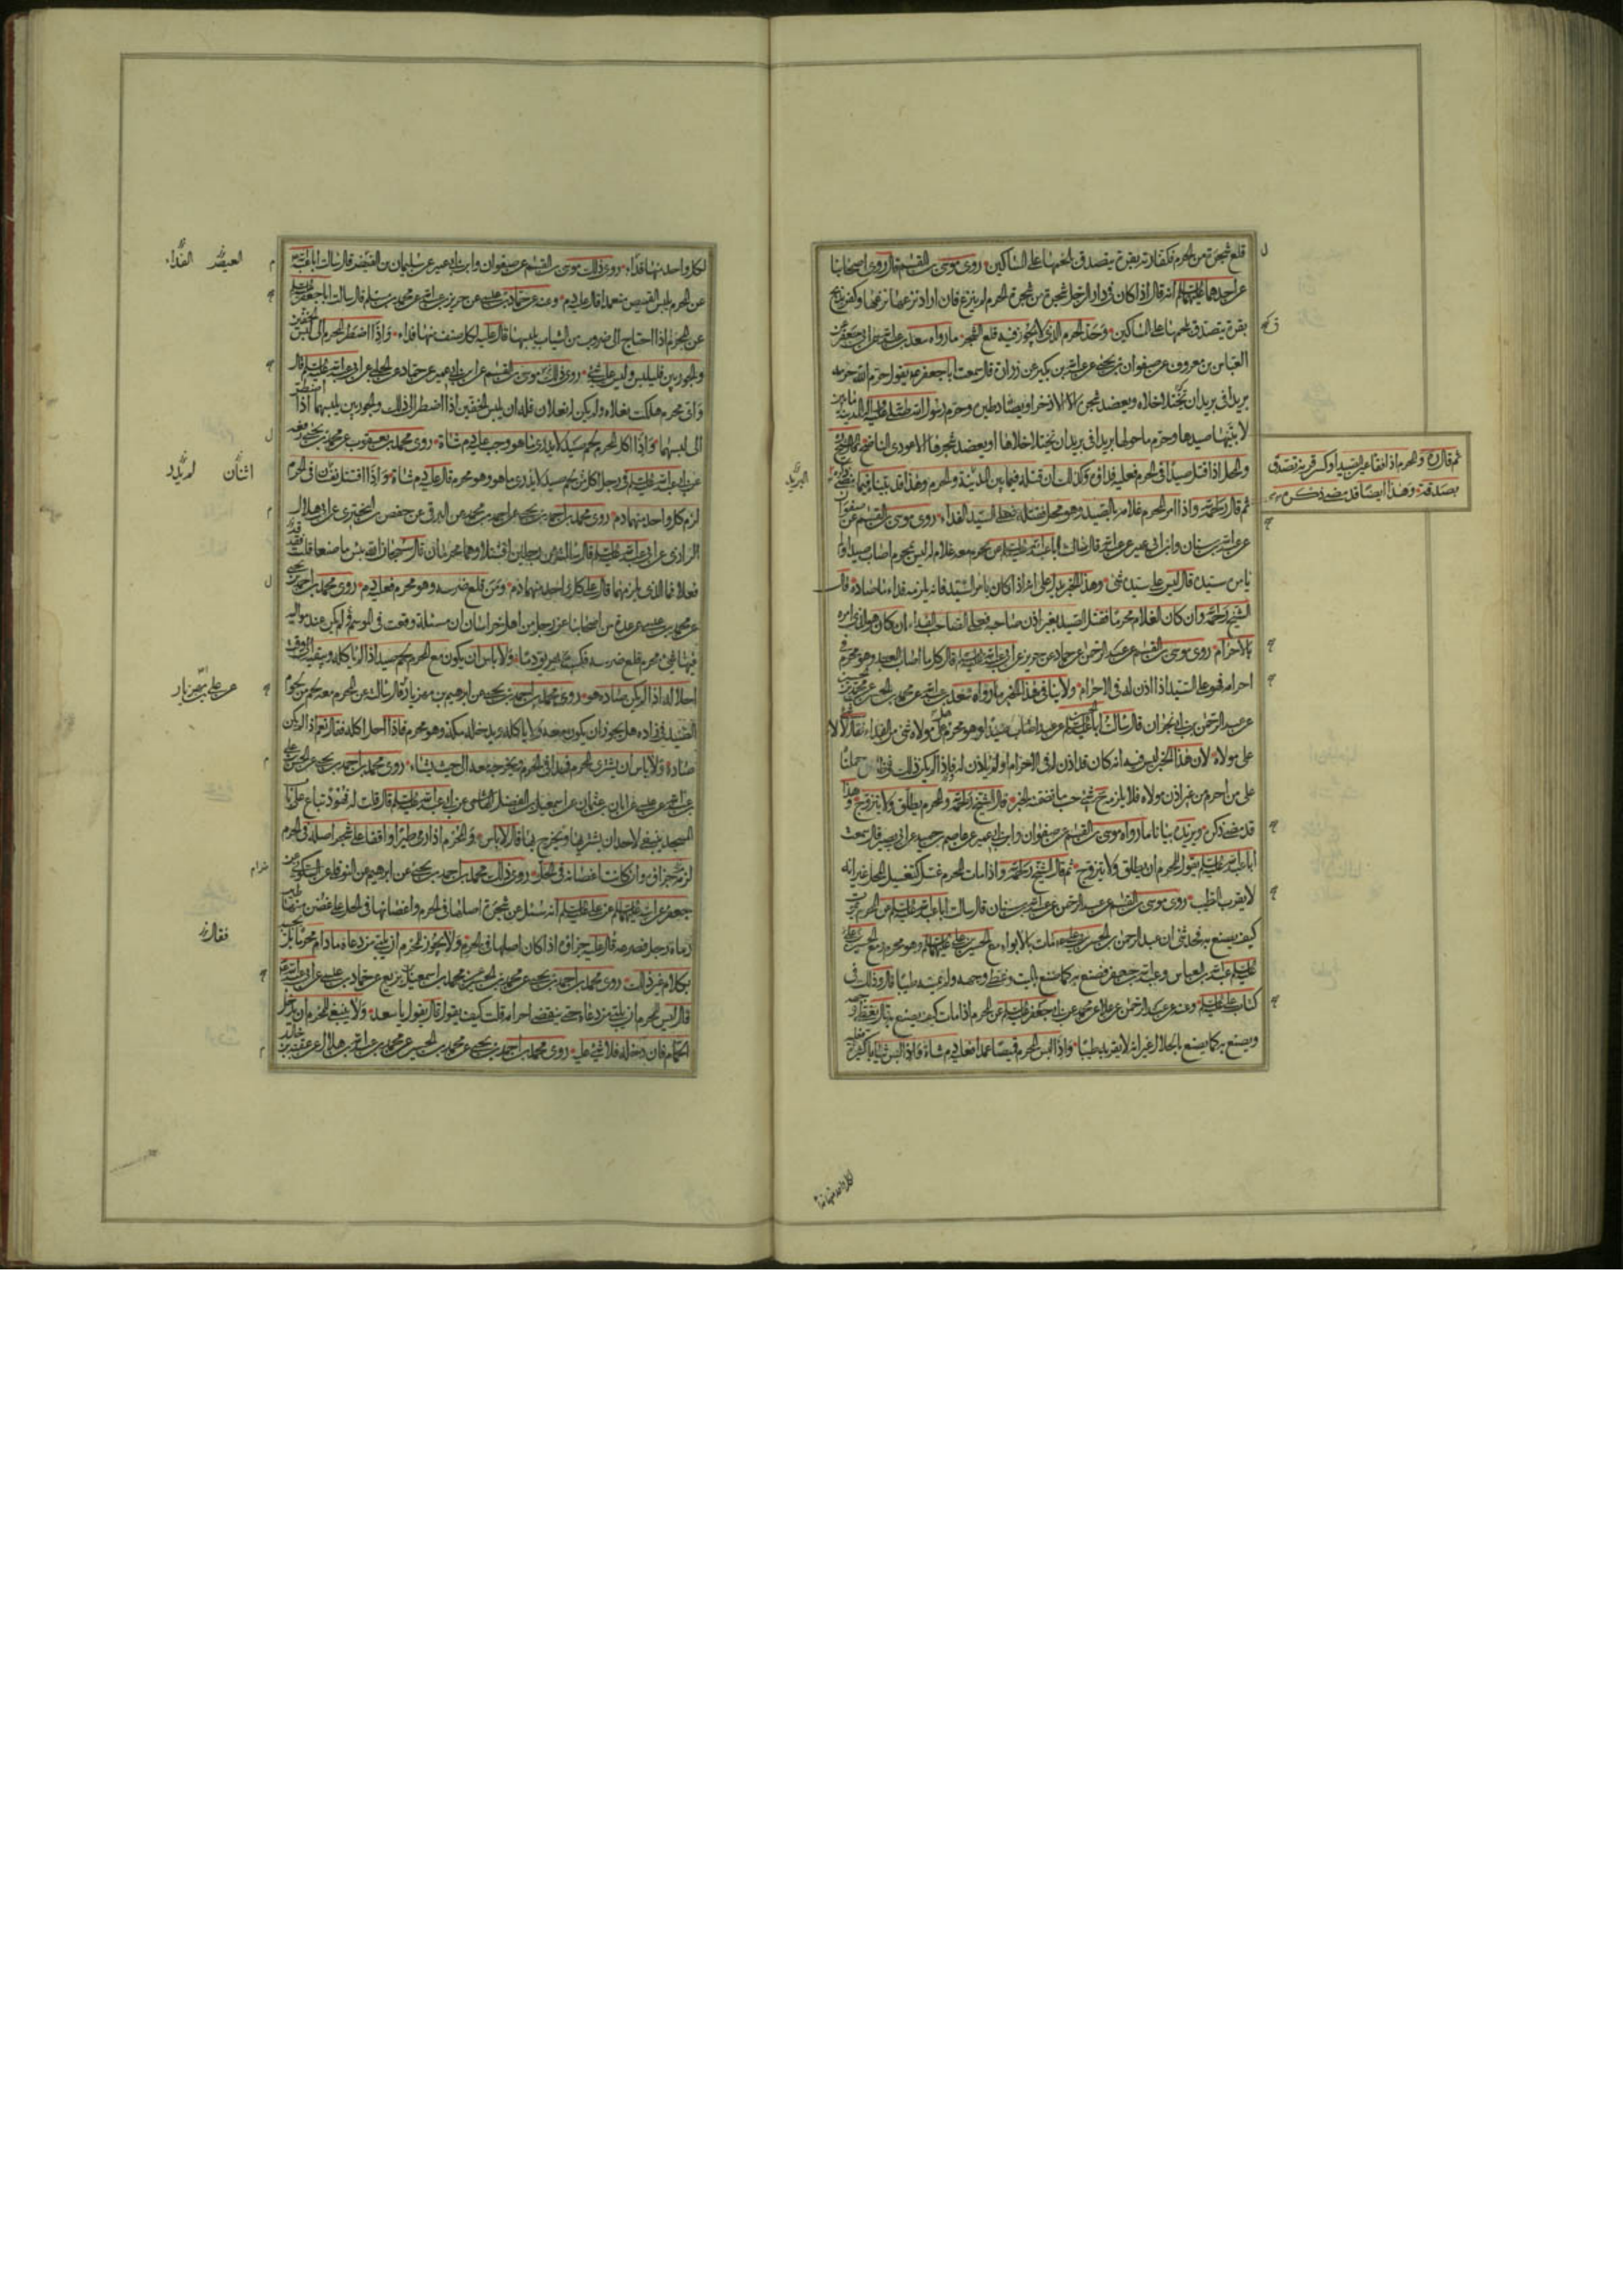 قلع شجرة من الحرم فكفارته بقرة يتصدق بلحمها على المساكين روى موسى بن القسم قال روى اصحابنا
عن احدهما عليهما السلم انه قال اذا كان فى دار الرجل شجرة من شجر الحرم لم ينزع فان اراد نزعها نزعها وكفر بذبح
بقرة يتصدق بلحمها على المساكين وحد الحرم الذى لا يجوز فيه قلع الشجر ما رواه سعد بن عبد الله عن ابى جعفر عن
العباس بن معروف عن صفوان بن يحيى عن عبد الله بن بكير عن زرارة قال سمعت ابا جعفر ع يقول حرم الله حرمه
بريدا فى بريد ان يختلا خلاه ويعضد شجره الا الاذخر او يصاد طيره وحرم رسول الله المدينة ما بين
لابتيها صيدها وحرم ما حولها بريدا فى بريد ان يختلا خلاها او يعضد شجرها الا عودى الناضح
والمحل اذا قتل صيدا فى الحرم فعليه فداؤه وكذلك ان قتله فيما بين البريد والحرم وهذا قد بينا فيما مضى
ثم قال رحمه الله واذا امر المحرم غلامه بالصيد وهو محل فقتله فعلى السيد الفداء روى موسى بن القسم عن صفوان
عن عبد الله بن سنان وابن ابى عمير عن عبد الله قال سالت ابا عبد الله عليه السلم عن محرم معه غلام له ليس بمحرم اصاب صيدا ولم
يامره سيده قال ليس على سيده شئ وهذا الخبر يدل على انه اذا كان بامر السيد فانه يلزمه فداء ما صاده قال
الشيخ رحمه الله وان كان الغلام محرما فقتل الصيد بغير اذن صاحبه فعلى الصاحب الفداء ان كان هو الذى امره
بالاحرام روى موسى بن القسم عن عبد الرحمن عن حماد عن حريز عن ابى عبد الله عليه السلم قال كل ما اصاب العبد وهو محرم فى
احرامه فهو على السيد اذا اذن له فى الاحرام ولا ينافى هذا الخبر ما رواه سعد بن عبد الله عن محمد بن الحسن عن محمد بن
عن عبد الرحمن بن ابى نجران قال سالت ابا الحسن عليه السلم عن عبد اصاب صيدا وهو محرم هل على مولاه شئ من الفداء فقال لا
على مولاه لان هذا الخبر ليس فيه انه كان قد اذن له فى الاحرام او لم ياذن له فاذا لم يكن ذلك فى ظاهره حملناه
على من احرم من غير اذن مولاه فلا يلزمه حينئذ شئ حسب ما تضمنه الخبر قال الشيخ رحمه الله والمحرم يطلق ولا يتزوج وهذا
قد مضى ذكره ويزيده بيانا ما رواه موسى بن القسم عن صفوان وابن ابى عمير عن عاصم بن حميد عن ابى بصير قال سمعت
ابا عبد الله عليه السلم يقول المحرم ان يطلق ولا يتزوج ثم قال الشيخ رحمه الله واذا مات المحرم غسل كتغسيل المحل غير انه
لا يقرب الطيب روى موسى بن القسم عن عبد الرحمن عن عبد الله بن سنان قال سالت ابا عبد الله عليه السلم عن المحرم يموت
كيف يصنع به فحدثنى ان عبد الرحمن بن الحسن بن على مات بالابواء مع الحسين بن على عليهما السلم وهو محرم ومع الحسين
عبد الله بن العباس وعبد الله بن جعفر فصنع به كما صنع بالميت وغطى وجهه ولم يمسه طيبا قال وذلك فى
كتاب على عليه السلم وعنه عن عبد الرحمن عن علا عن محمد عن ابى جعفر عليه السلم عن المحرم اذا مات كيف يصنع به قال يغطى وجهه
ويصنع به كما يصنع بالحلال غير انه لا يقربه طيبا واذا لبس المحرم قميصا عمدا فعليه دم شاة فاذا لبس ثيابا كثيرة
ثم قال ره والمحرم اذا فقا عين الصيد او كسر قرنه تصدق
بصدقة وهذا ايضا قد مضى ذكره
البريد
لكل واحد منها فدا
لكل واحد منها فداء روى ذلك موسى بن القسم عن صفوان وابن ابى عمير عن سليمان بن العيص قال سالت ابا عبد الله
عن المحرم يلبس القميص متعمدا قال عليه دم وعنه عن حماد بن عيسى عن حريز بن عبد الله عن محمد بن مسلم قال سالت ابا جعفر عليه السلم
عن المحرم اذا احتاج الى ضروب من الثياب يلبسها قال عليه لكل صنف منها فداء واذا اضطر المحرم الى لبس الخفين
والجوربين فليلبس وليس عليه شئ روى ذلك موسى بن القسم عن ابن ابى عمير عن حماد عن الحلبى عن ابى عبد الله عليه السلم قال
واى محرم هلكت نعلاه ولم يكن له نعلان فله ان يلبس الخفين اذا اضطر الى ذلك والجوربين يلبسهما اذا اضطر
الى لبسهما واذا اكل المحرم لحم صيد لا يدرى ما هو وجب عليه دم شاة روى محمد بن يعقوب عن محمد بن يحيى رفعه
عن ابى عبد الله عليه السلم فى رجل اكل من لحم صيد لا يدرى ما هو وهو محرم قال عليه دم شاة واذا اقتتل نفسان فى الحرم
لزم كل واحد منهما دم روى محمد بن احمد بن يحيى عن احمد بن محمد عن البرقى عن حفص بن البخترى عن ابى هلال
الرازى عن ابى عبد الله عليه السلم قال سالته عن رجلين اقتتلا وهما محرمان قال سبحان الله بئس ما صنعا قلت قد
فعلا فما الذى يلزمهما قال على كل واحد منهما دم ومن قلع ضرسه وهو محرم فعليه دم روى محمد بن احمد بن يحيى
عن محمد بن عيسى عن عدة من اصحابنا عن رجل من اهل خراسان ان مسئلة وقعت فى الموسم لم يكن عند مواليه
فيها شئ محرم قلع ضرسه فكتب يهريق دما ولا باس ان يكون مع المحرم لحم صيد اذا لم ياكله ويبقيه الى وقت
احلاله اذا لم يكن صاده هو روى محمد بن احمد بن يحيى عن ابرهيم بن مهزيار قال سالته عن المحرم معه لحم من لحوم
الصيد فى زاده هل يجوز ان يكون معه ولا ياكله ويدخله مكة وهو محرم فاذا احل اكله فقال نعم اذا لم يكن
صاده ولا باس ان يشترى المحرم فهدا فى الحرم ويخرج به معه الى حيث يشاء روى محمد بن احمد بن يحيى عن الحسن بن على
عن ابان بن عثمان عن اسمعيل بن الفضل الهاشمى عن ابى عبد الله عليه السلم قال قلت له فهود تباع على باب
المسجد ينبغى لاحد ان يشتريها ويخرج بها قال لا باس والمحرم اذا رمى طيرا واقفا على شجر اصله فى الحرم
لزمه جزاؤه وان كانت اغصانه فى الحل روى ذلك محمد بن احمد بن يحيى عن ابرهيم عن النوفلى عن السكونى عن
جعفر عن ابيه عليهما السلم عن على عليه السلم انه سئل عن شجرة اصلها فى الحرم واغصانها فى الحل على غصن منها طير
رماه رجل فصرعه قال عليه جزاؤه اذا كان اصلها فى الحرم ولا يجوز للمحرم ان يلبى من دعاه ما دام محرما بل يجيبه
بكلام غير ذلك روى محمد بن احمد بن يحيى عن محمد بن الحسين عن محمد بن اسمعيل بن بزيع عن حماد بن عيسى عن ابى عبد الله ع
قال ليس للمحرم ان يلبى من دعاه حتى ينقضى احرامه قلت كيف يقول قال يقول يا سعد ولا ينبغى للمحرم ان يدخل
الحمام فان دخله فلا شئ عليه روى محمد بن احمد بن يحيى عن محمد بن الحسين عن محمد بن عبد الله بن هلال عن عقبة بن خالد
العيص الفداء
اثنان لم يلد
عن على بن مهزيار
فقال